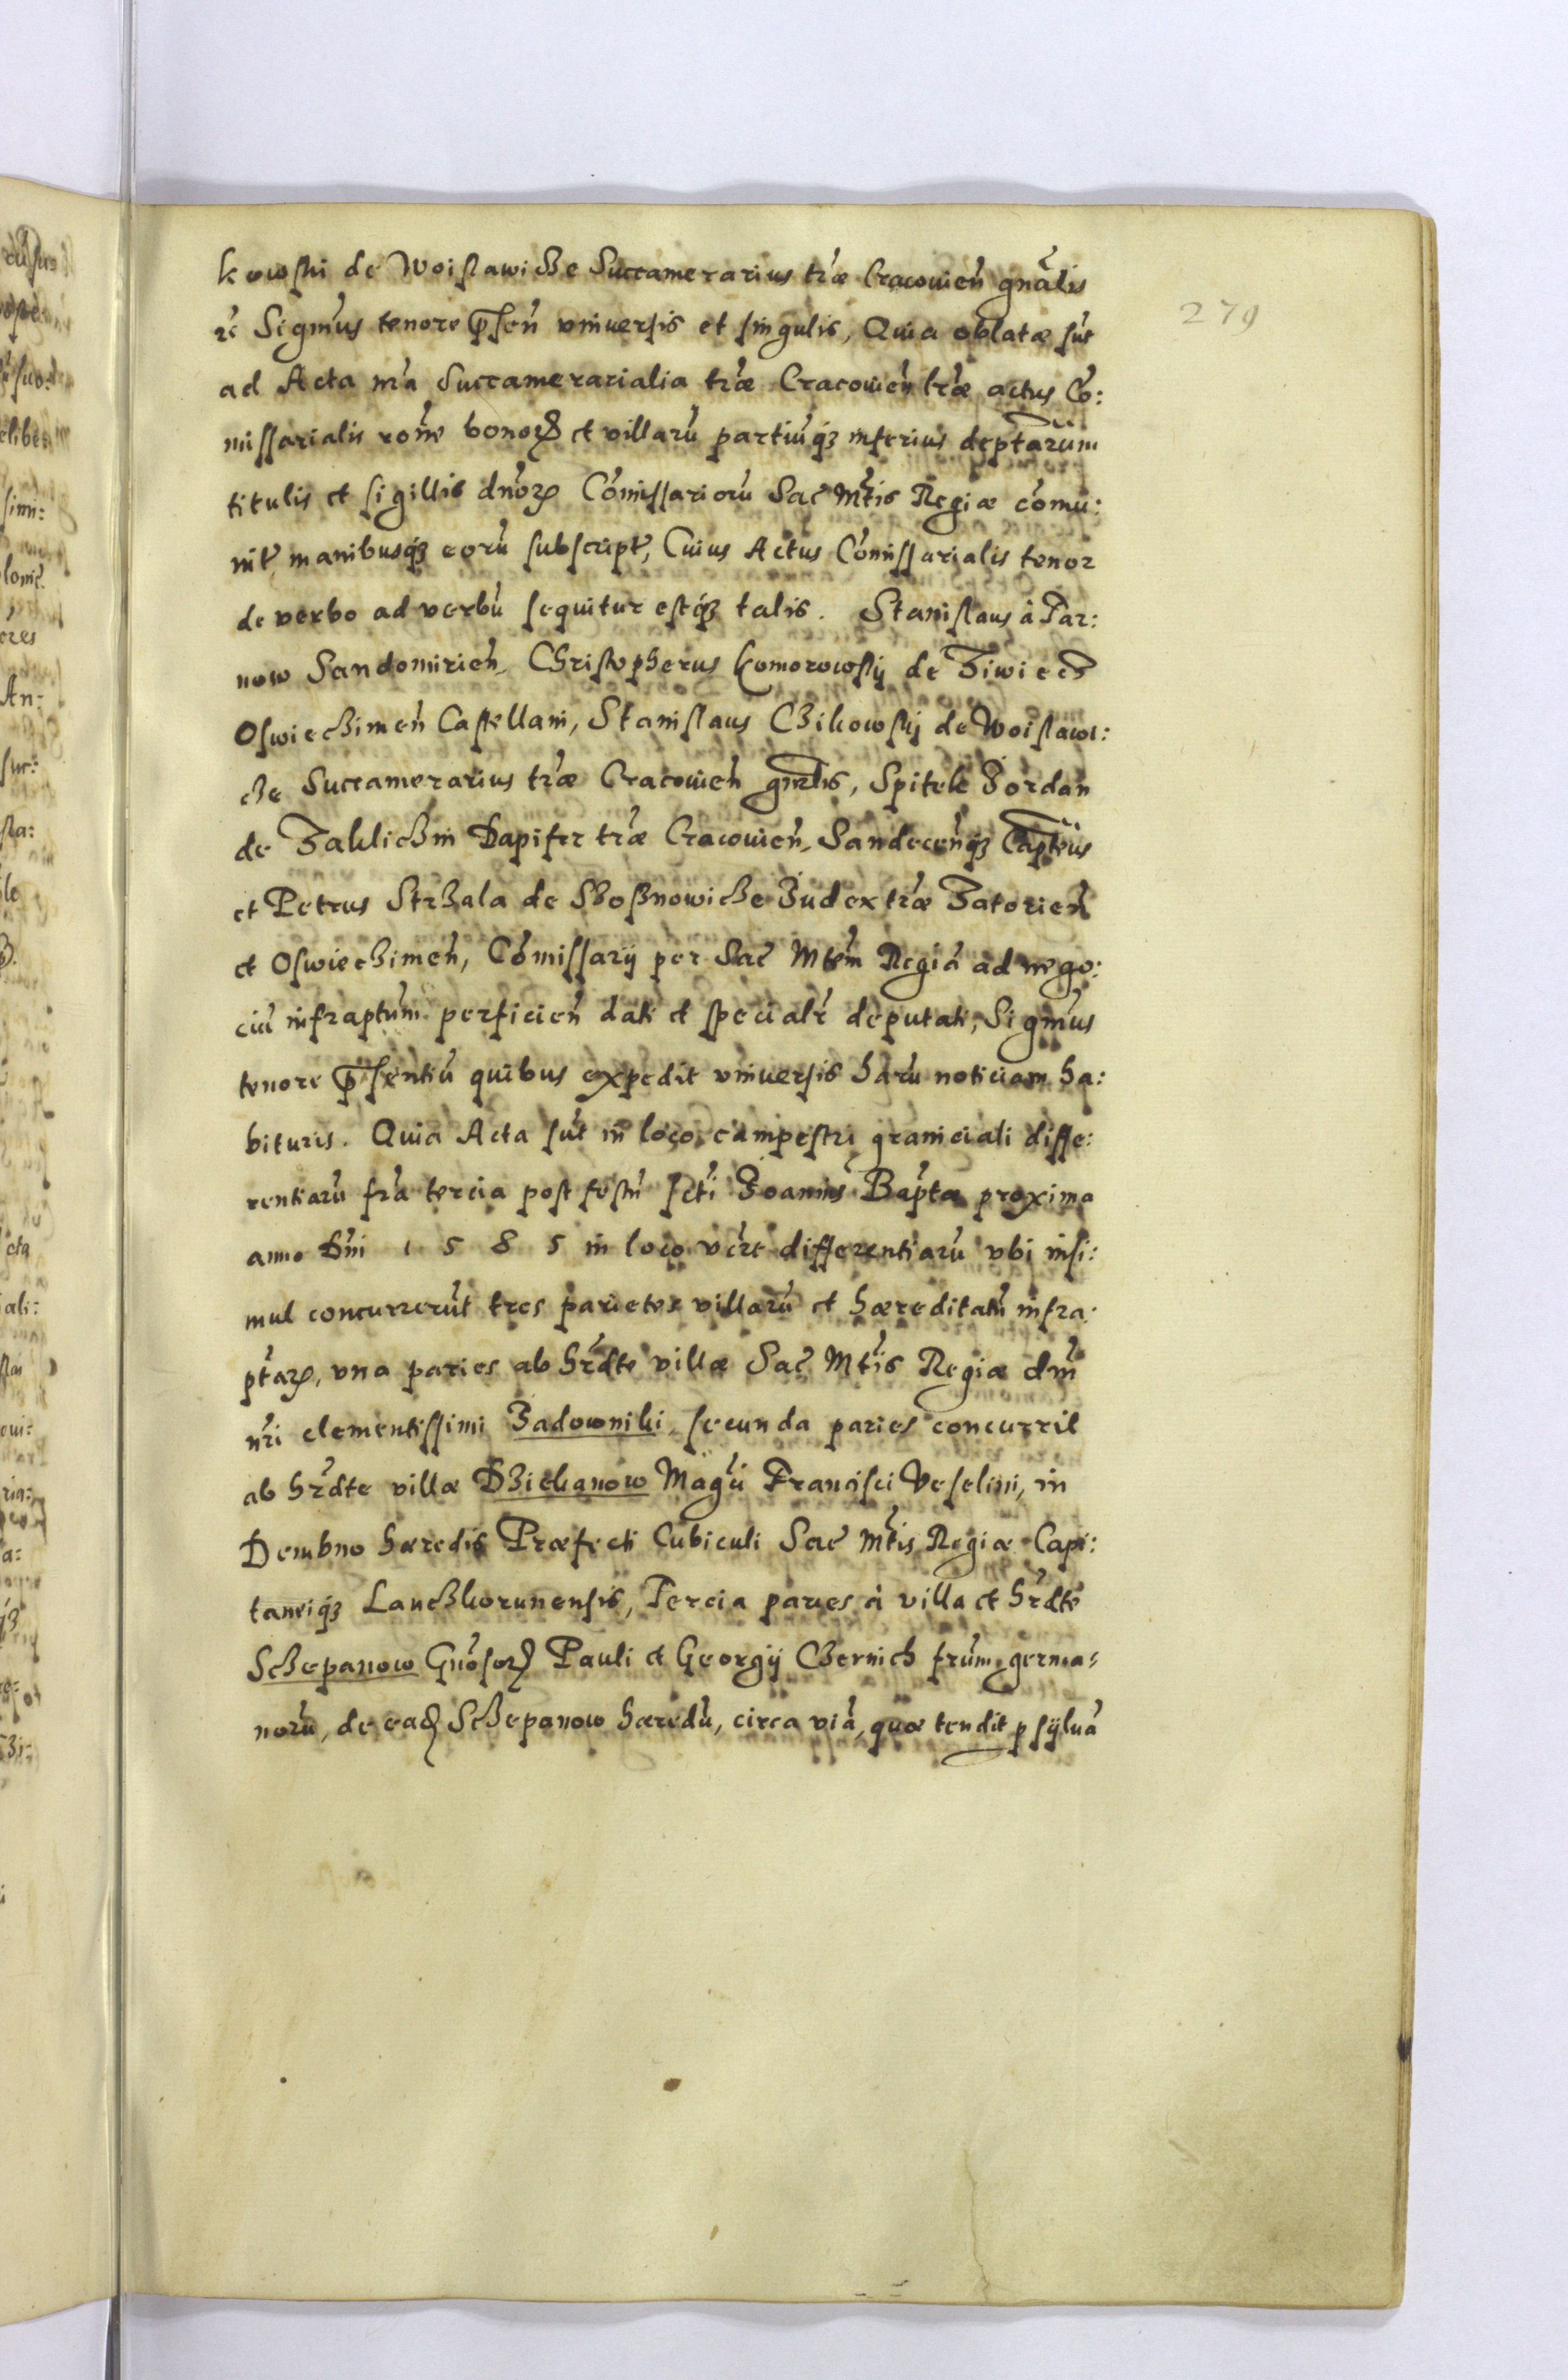 kowski de Woislawicze Succamerarius tr̃æ Cracovieñ gnãlis
rc̃ Sigm̃us tenore p̃señ vniuersis et singulis, Quia oblatæ sũt
ad Acta nr̃a Succamerarialia tr̃æ Cracovieñ lr̃æ actus Cõ:
missarialis rõne bonoꝝ et villarũ partiũqꝫ inferius deptãrum
titulis et sigillis dnõꝝ Cõmissariorũ Sac̃ Mt̃is Regiæ cõmu:
nit̃ manibusqꝫ eorũ subscript̃, Cuius Actus Cõmissarialis tenor
de verbo ad verbũ sequitur estqꝫ talis. Stanislaus à Tar:
now Sandomirieñ, Christopherus Komorowsky de Ziwiecz
Oswieczimeñ Castellani, Stanislaus Czikowskj de Woislawi:
cze Succamerarius tr̃æ Cracovieñ gnr̃lis, Spitek Jordan
de Zakliczin Dapifer tr̃æ Cracovieñ, Sandeceñqꝫ Captẽus
et Petrus Strzala de Sboßnowicze Judex tr̃æ Zatorieñ
et Oswieczimeñ, Cõmissarij per Sac̃ Mtẽm Regiã ad nego:
ciũ infraptũm perficieñ dati et specialr̃ deputati, Sigm̃us
tenore p̃sentiũ quibus expedit vniuersis harũ noticiam ha:
bituris. Quia Acta sũt in loco campestri graniciali diffe:
rentiarũ fr̃ia tercia post festũ scti Joannis Bapt̃æ proxima
anno Dñi 1585 in loco vert̃ differentiarũ vbi insi:
mul concurrerũt tres parietes villarũ et hæreditatũ infra:
pt̃aꝝ, vna paries ab hrd̃te villæ Sac̃ Mt̃is Regiæ dñi
nr̃i clementissimi Jadowniki, secunda paries concurrit
ab hrd̃te villæ Dzickanow Magci Francisci Veselini, in
Dembno hæredis Præfecti Cubiculi Sac̃ Mt̃is Regiæ Capi:
taneiqꝫ Lanczkorunensis, Tercia paries à villa et hrd̃te
Sczepanow Gnõsoꝝ Pauli et Georgij Czernich frũm germa:
norũ, de eadꝫ Sczepanow hæredũ, circa viã, quæ tendit ꝑ sÿluã
279